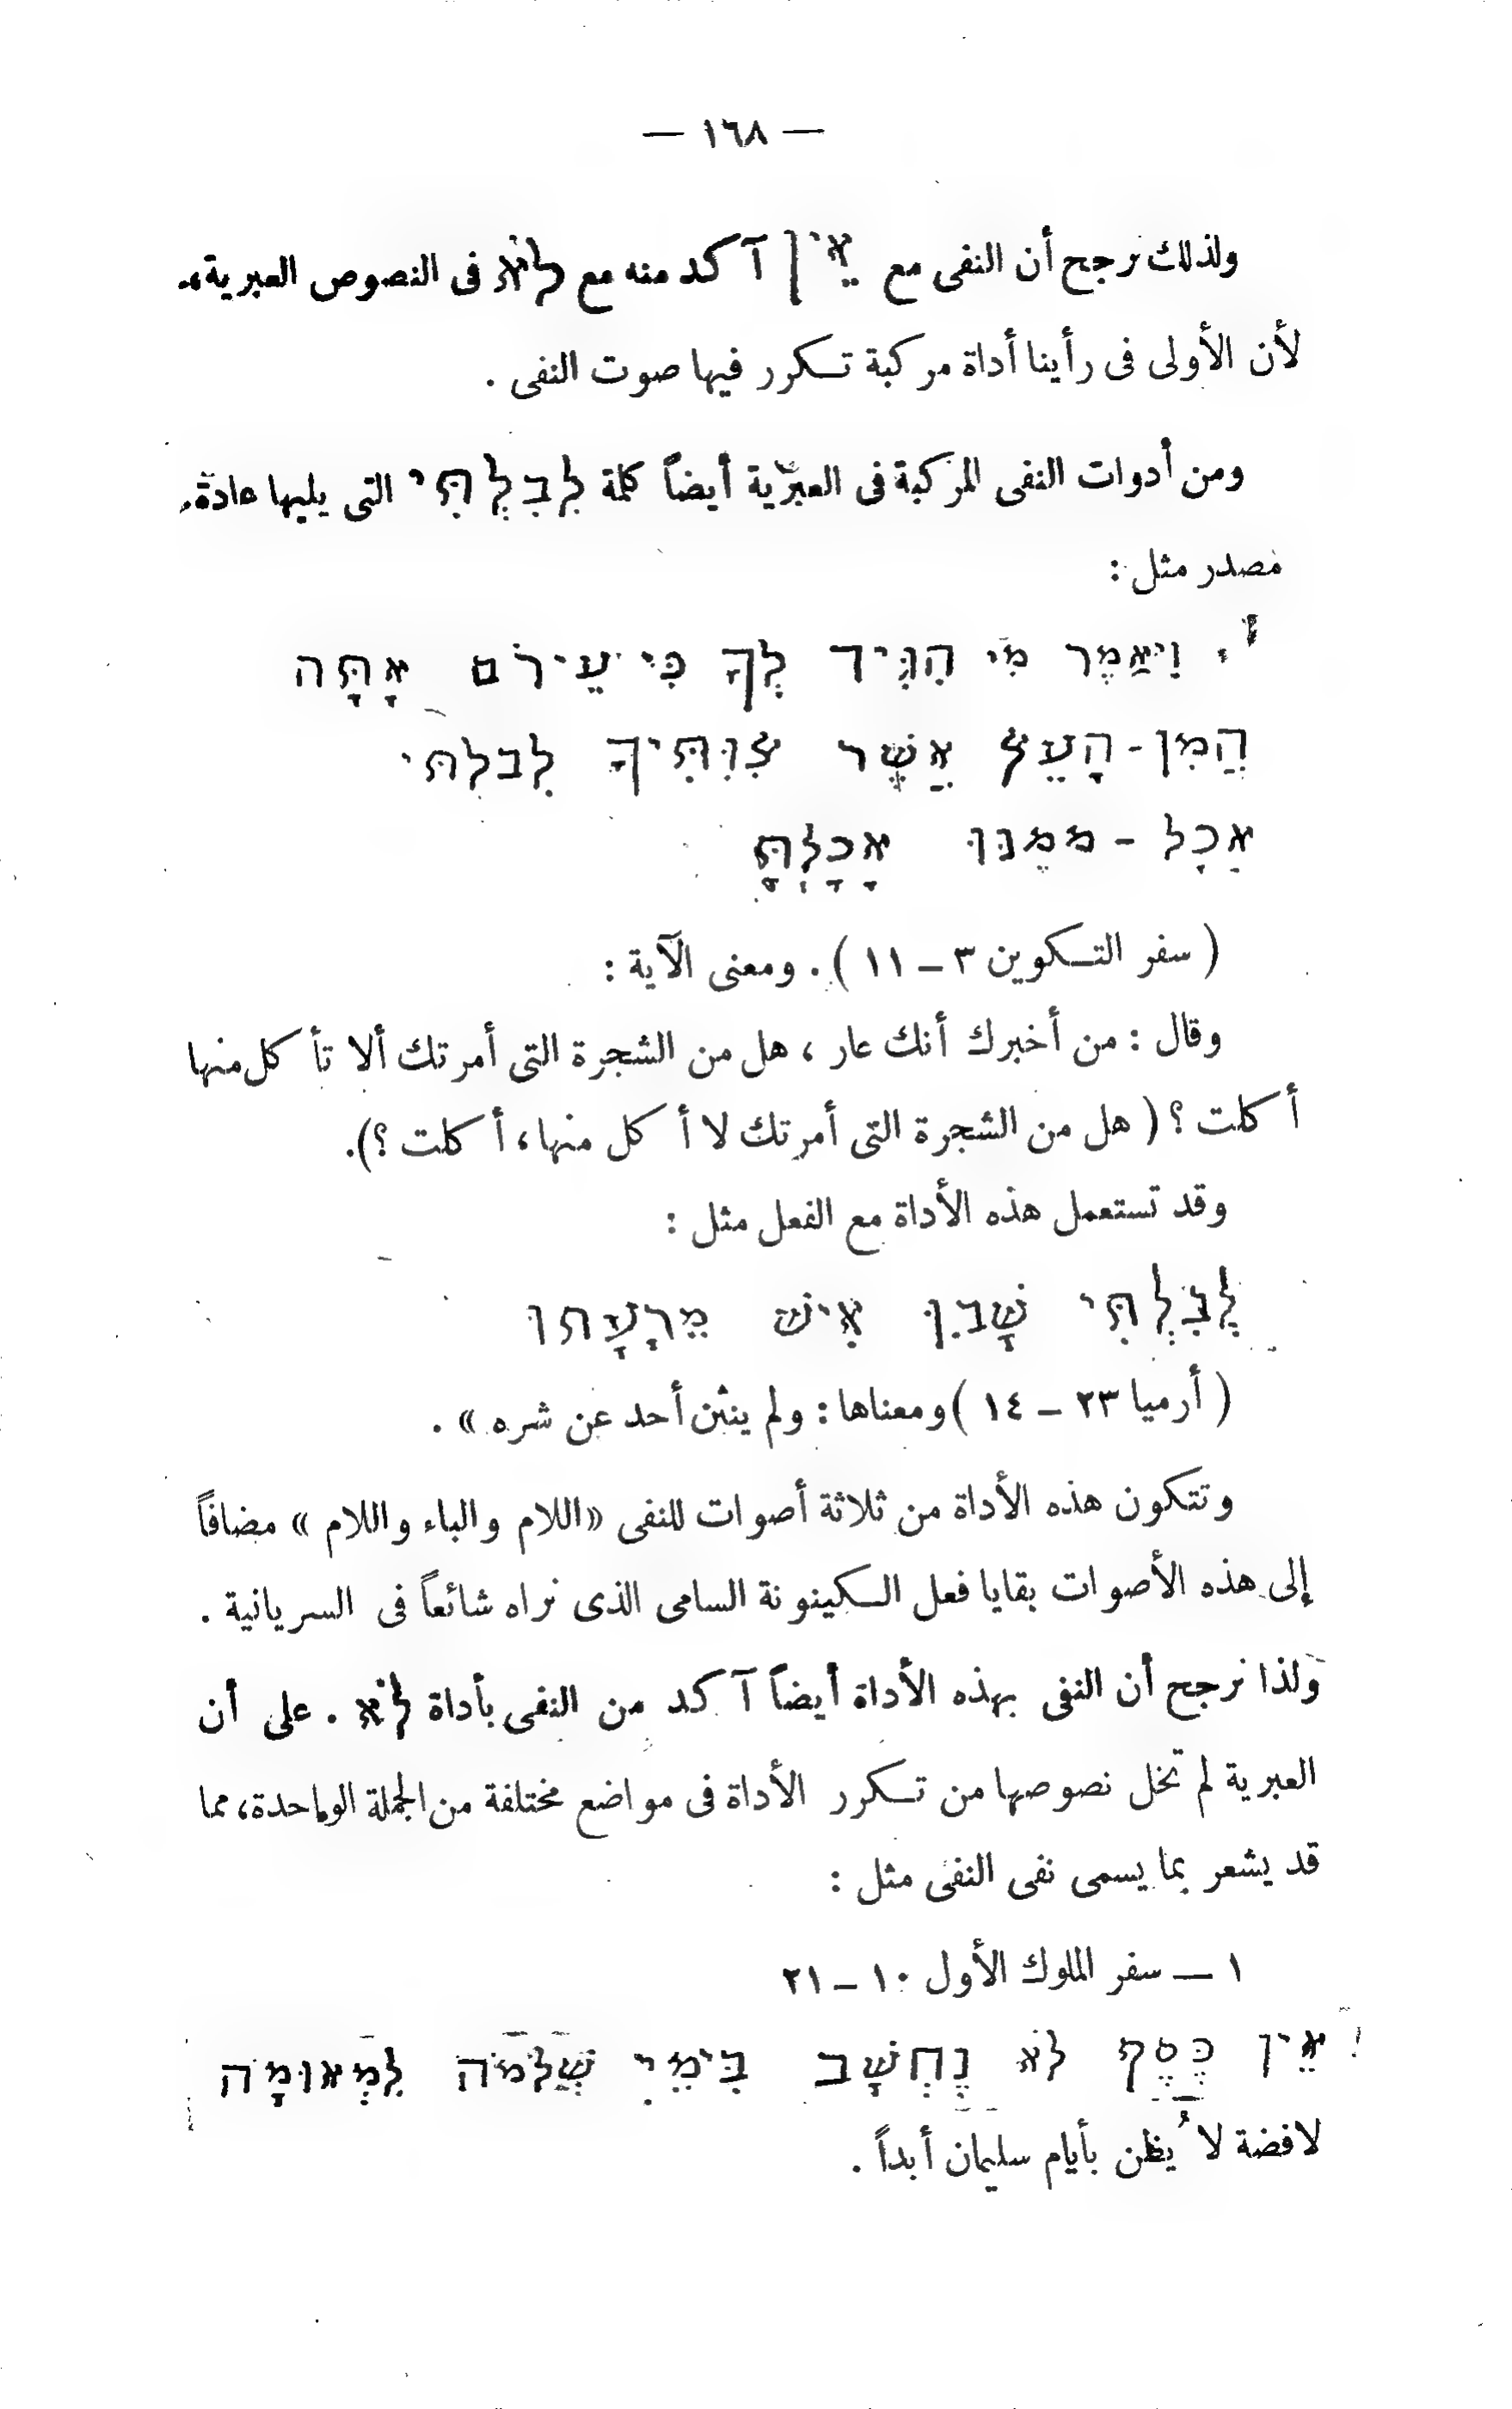 — ١٦٨ —
ولذلك نرجح أن النفى مع אֵין آكد منه مع לֹא فى النصوص العبرية،
لأن الأولى فى رأينا أداة مركبة تكرر فيها صوت النفى .
ومن أدوات النفى المركبة فى العبرية أيضاً كلمة לִבִלְתִּי التى يليها عادة
مصدر مثل :
וַיּאֹמֶר מִי הִגִּיד לְךָ כִּי עֵירֹם אָתָּה
הֲמִן - הָעֵץ אֲשֶׁר צִוִּתִּיךָ לִבלתּי
אֲכָל - ממֶנּוּ אָכָלְתָּ
( سفر التكوين ٣ – ١١ ) . ومعنى الآية :
وقال : من أخبرك أنك عار ، هل من الشجرة التى أمرتك ألا تأكل منها
أكلت ؟ ( هل من الشجرة التى أمرتك لا أكل منها ، أكلت ؟ ) .
وقد تستعمل هذه الأداة مع الفعل مثل :
לְבִלְתִּי שָׁבוּ אִישׁ מֵרָעָתוֹ
( أرميا ٢٣ – ١٤ ) ومعناها : ولم ينثن أحد عن شره » .
وتتكون هذه الأداة من ثلاثة أصوات للنفى « اللام والباء واللام » مضافاً
إلى هذه الأصوات بقايا فعل الكينونة السامى الذى نراه شائعاً فى السريانية .
ولذا نرجح أن النفى بهذه الأداة أيضاً آكد من النفى بأداة לֹא . على أن
العبرية لم تخل نصوصها من تكرر الأداة فى مواضع مختلفة من الجملة الواحدة، مما
قد يشعر بما يسمى نفى النفى مثل :
١ — سفر الملوك الأول ١٠ – ٢١
אֵין כֶּסֶף לֹא נֶחְשָׁב בִּימֵי שְׁלֹמֹה לִמְאוּמָה
لا فضة لا يُظن بأيام سليمان أبداً .